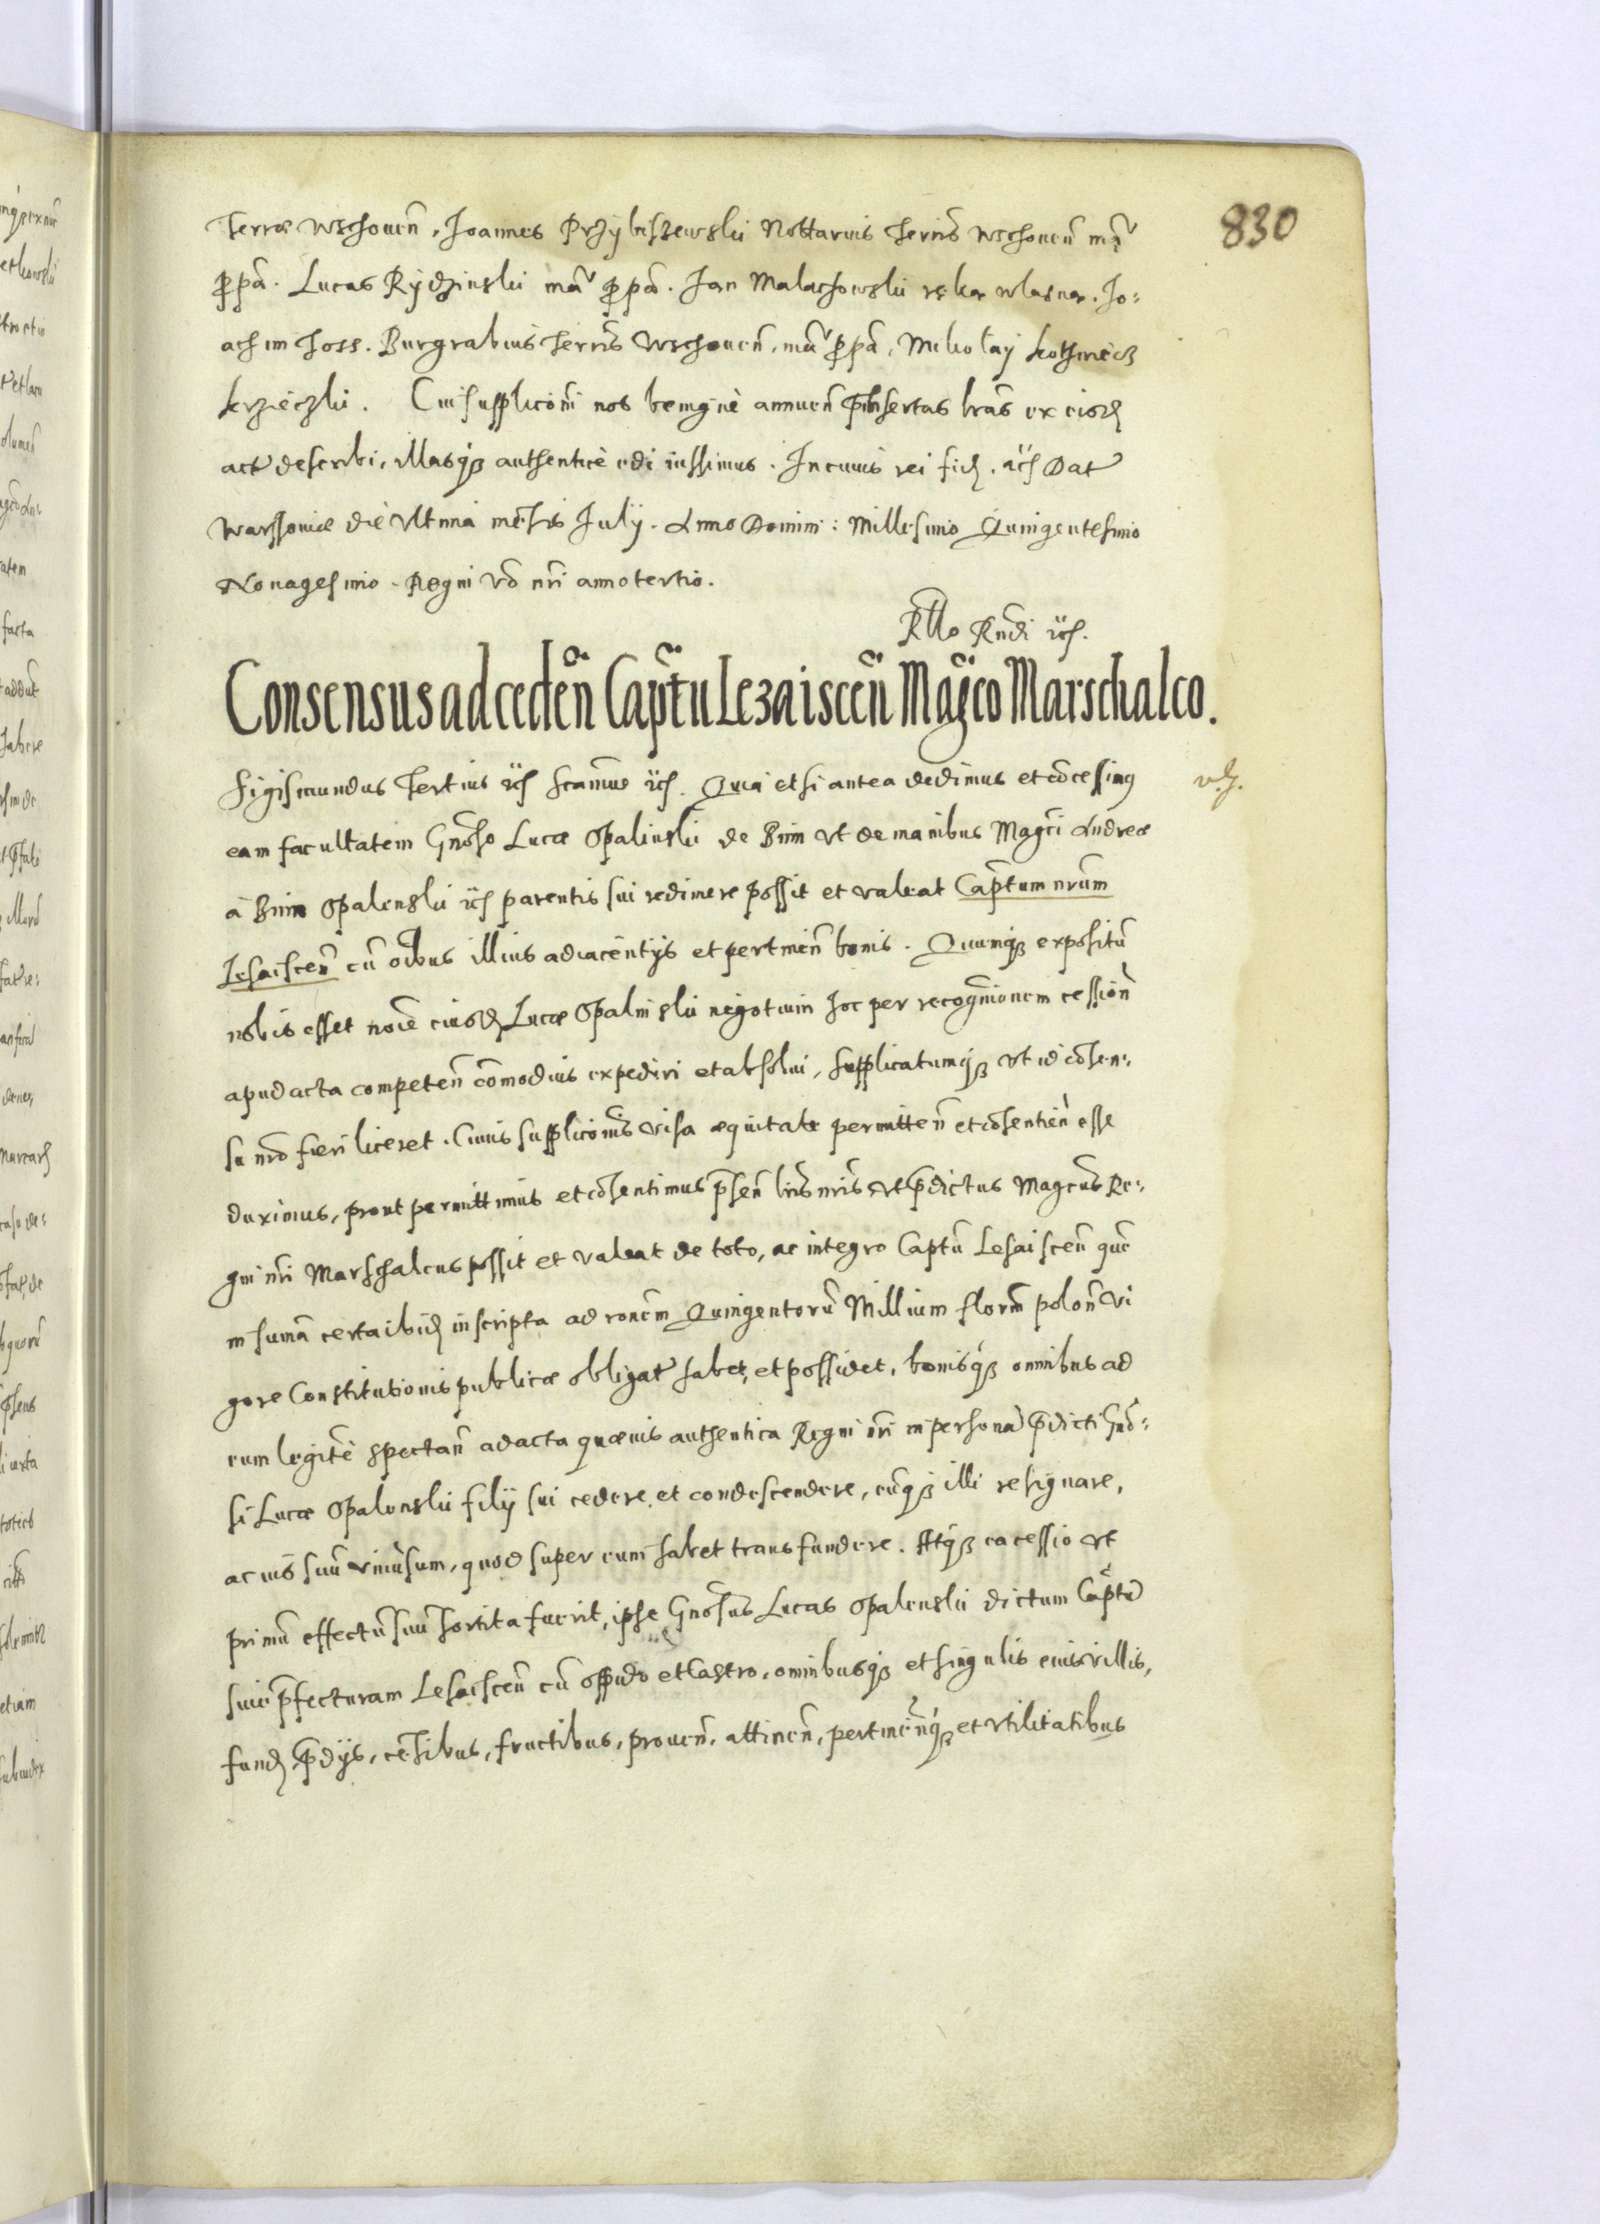 830
Terræ Wschouen̄, Joannes Przÿbiszewski Nottarius Terrīs Wschouen̄ mā
ꝓpā. Lucas Rÿdzinski mā ꝓpā. Jan Malachowski ręka wlasna. Jo:
achim Joss. Burgrabius Terrīs Wschouen̄, mā ꝓpā, Mikołaÿ
Cui supplicōni nos benignè annuen̄ p̄insertas lrās ex eisd̄
act describi, illasqꝫ authenticè edi iussimus. In cuius rei fid̄. ac̄ Dat
Warssouiæ die Vltima mēsis Julÿ. Anno Domini: Millesimo Quingentesimo
Nonagesimo. Regni vō nr̄i anno tertio.
Rtto Rndi ac̄.
Consensus ad ceden̄ Cap̄tū Lezaiscen̄ Maḡco Marschalco.
Sigismundus Tertius ac̄ ac̄. Quia etsi antea dedimus et cōcessimꝯ
eam facultatem Gn̄oso Lucæ Opalinski de Bnin vt de manibus Maḡci Andreæ
à Bnin Opalenski ac̄ parentis sui redimere possit et valeat Cap̄tum nr̄um
Lesaiscen̄ cū oībus illius adiacentÿs et pertinen̄ bonis. Quumqꝫ expositū
nobis esset noīe eiusd̄ Lucæ Opalinski negotium hoc per recognitionem cession̄
apud acta competen̄ cōmodius expediri et absolui, supplicatumqꝫ vt id cōsen:
su nr̄o fieri liceret. Cuius supplicōnis visa æquitate permitten̄ et cōsentien̄ esse
duximus, prout permittimus et cōsentimus p̄sen̄ lrīs nr̄is vt p̄dictus Magcus Re:
gni nr̄i Marschalcus possit et valeat de toto, ac integro Captū Lesaiscen̄ quē
in sumā certa ibid̄ inscripta ad ronem Quingentorū Millium floren̄ polon̄ vi
gore Constitutionis publicæ obligat habet, et possidet, bonisqꝫ omnibus ad
eum legitimè spectan̄ ad acta quæuis authentica Regni nr̄i in personā p̄dicti Gn̄o:
si Lucæ Opalenski filÿ sui cedere et condescendere, eūqꝫ illi resignare,
ac ius suū vniuersum, quod super eum habet transfundere. Atqꝫ ea cessio vt
primū effectū suū sortita fuerit, ipse Gn̄osus Lucas Opalenski dictum Cap̄tū
siue p̄fecturam Lesaiscen̄ cū oppido et Castro, omnibusqꝫ et singulis eius villis,
fund̄ p̄dÿs, cēsibus, fructibus, prouen̄, attinen̄, pertinen̄qꝫ et vtilitatibus